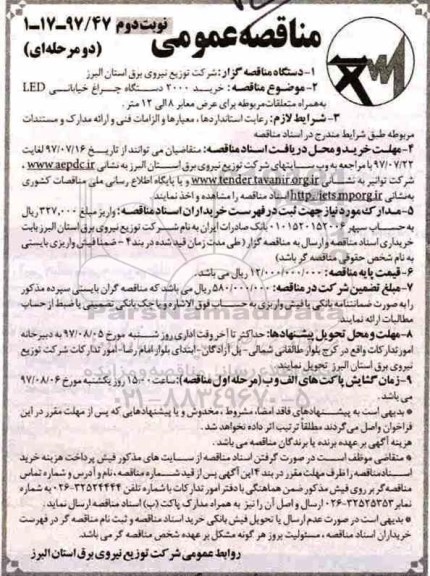 مناقصه عمومی
نوبت دوم ۹۷/۴۷-۱۷-۱
(دو مرحله‌ای)
۱- دستگاه مناقصه گزار: شرکت توزیع نیروی برق استان البرز
۲- موضوع مناقصه: خرید ۲۰۰۰ دستگاه چراغ خیابانی LED
به همراه متعلقات مربوطه برای عرض معابر ۸ الی ۱۲ متر.
۳- شرایط لازم: رعایت استانداردها، معیارها و الزامات فنی و ارائه مدارک و مستندات
مربوطه طبق شرایط مندرج در اسناد مناقصه
۴- مهلت خرید و محل دریافت اسناد مناقصه: متقاضیان می توانند از تاریخ ۹۷/۰۷/۱۶ لغایت
۹۷/۰۷/۲۲ با مراجعه به وب سایتهای شرکت توزیع نیروی برق استان البرز به نشانی www.aepdc.ir،
شرکت توانیر به نشانی www.tender.tavanir.org.ir و یا پایگاه اطلاع رسانی ملی مناقصات کشوری
به نشانی http://iets.mporg.ir اسناد مناقصه را مشاهده و اخذ نمایند.
۵- مدارک مورد نیاز جهت ثبت در فهرست خریداران اسناد مناقصه: واریز مبلغ ۳۲۷,۰۰۰ ریال
به حساب سپهر ۰۱۰۱۵۲۰۱۵۲۰۰۶ بانک صادرات ایران به نام شرکت توزیع نیروی برق استان البرز بابت
خریداری اسناد مناقصه و ارسال به مناقصه گزار (طی مدت زمان قید شده در بند ۴ - ضمنا فیش واریزی بایستی
به نام شخص حقوقی مناقصه گر باشد)
۶- قیمت پایه مناقصه: ۱۲/۰۰۰/۰۰۰/۰۰۰ ریال می باشد.
۷- مبلغ تضمین شرکت در مناقصه: ۵۸۰/۰۰۰/۰۰۰ ریال می باشد که مناقصه گران بایستی سپرده مذکور
را به صورت ضمانتنامه بانکی یا فیش واریزی به حساب فوق الاشاره و یا چک بانکی تضمینی یا ضبط از حساب
مطالبات ارائه نمایند.
۸- مهلت و محل تحویل پیشنهادها: حداکثر تا آخر وقت اداری روز شنبه مورخ ۹۷/۰۸/۰۵ به دبیرخانه
امور تدارکات واقع در کرج بلوار طالقانی شمالی - پل آزادگان - ابتدای بلوار امام رضا - امور تدارکات شرکت توزیع
نیروی برق استان البرز تحویل نمایند.
۹- زمان گشایش پاکت های الف و ب (مرحله اول مناقصه): ساعت ۱۵:۰۰ روز یکشنبه مورخ ۹۷/۰۸/۰۶
می باشد.
* بدیهی است به پیشنهادهای فاقد امضا، مشروط، مخدوش و یا پیشنهادهایی که پس از مهلت مقرر در این
فراخوان واصل می گردند مطلقا ترتیب اثر داده نخواهد شد.
* هزینه آگهی بر عهده برنده یا برندگان مناقصه می باشد.
* متقاضی موظف است در صورت گرفتن اسناد مناقصه از سایت های مذکور فیش پرداخت هزینه خرید
اسناد مناقصه را ظرف مهلت مقرر در بند ۴ این آگهی پس از قید شماره مناقصه، نام و آدرس و شماره تماس
مناقصه گر بر روی فیش مذکور ضمن هماهنگی با دفتر امور تدارکات با شماره تلفن ۳۲۵۲۴۴۴۴-۰۲۶ به شماره
نمابر ۳۲۵۲۵۳۵۳-۰۲۶ ارسال و اصل آن را نیز به همراه مدارک پاکت (ب) اسناد مناقصه ارسال نماید.
* بدیهی است در صورت عدم ارسال یا تحویل فیش بانکی خرید اسناد مناقصه و ثبت نام مناقصه گر در فهرست
خریداران اسناد مناقصه، مسئولیت بروز هر گونه مشکل بر عهده شخص مناقصه گر می باشد.
روابط عمومی شرکت توزیع نیروی برق استان البرز
ParsNamadData
۰۲۱-۸۸۳۴۹۶۷۰-۵